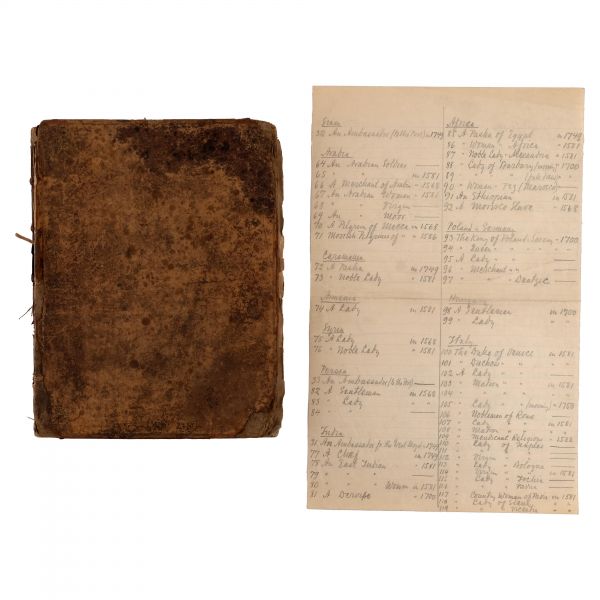 32 An Ambassador in 1749
Arabia
64 An Arabian Soldier
65 " " in 1581
66 A Merchant of " 1568
67 An Arabian Women " 1581
68 " "
69 An " Moor
70 A Pilgrim of Mecca in 1568
71 Moorish Pilgrims of " 1586
Caramania
72 A Pasha in 1749
73 " Noble Lady " 1581
Armenia
74 A Lady in 1581
Syria
75 A Lady in 1568
76 " Noble Lady " 1581
Persia
33 An Ambassador
82 A Gentleman in 1568
83 " Lady
84 "
India
31 An Ambassador 1749
77 A Chief in 1749
78 An East Indian " 1581
79 " "
80 " " Women in 1581
81 A Dervise " 1700
Africa
85 A Pasha of Egypt in 1749
86 " Women " Africa " 1581
87 " Noble Lady " Alexandria " 1581
88 " Lady of Barbary (morning) " 1700
89 " "
90 " Women " Fez (Morocco)
91 An Ethiopian in 1581
92 A Morisco Slave " 1568
Poland & Germany
93 The King of Poland & Saxony " 1700
94 " Queen " "
95 A Lady "
96 " Merchant " "
97 " " Dantzic
Hungary
98 A Gentleman in 1700
99 " Lady " "
Italy
100 The Duke of Venice in 1581
101 " Duchess " "
102 A Lady "
103 " Matron " in 1581
104 " " "
105 " Lady " (morning) " 1750
106 " Noblemen of Rome
107 " Lady " in 1581
108 " Matron " "
109 " Mendicant Religious " 1588
110 " Lady of Naples
111 " " "
112 " Virgin "
113 " Lady " Bologna
114 " Virgin " " in 1581
115 " Lady
116 " "
117 " Country Woman of in 1581
118 " Lady of Siena
119 " " "